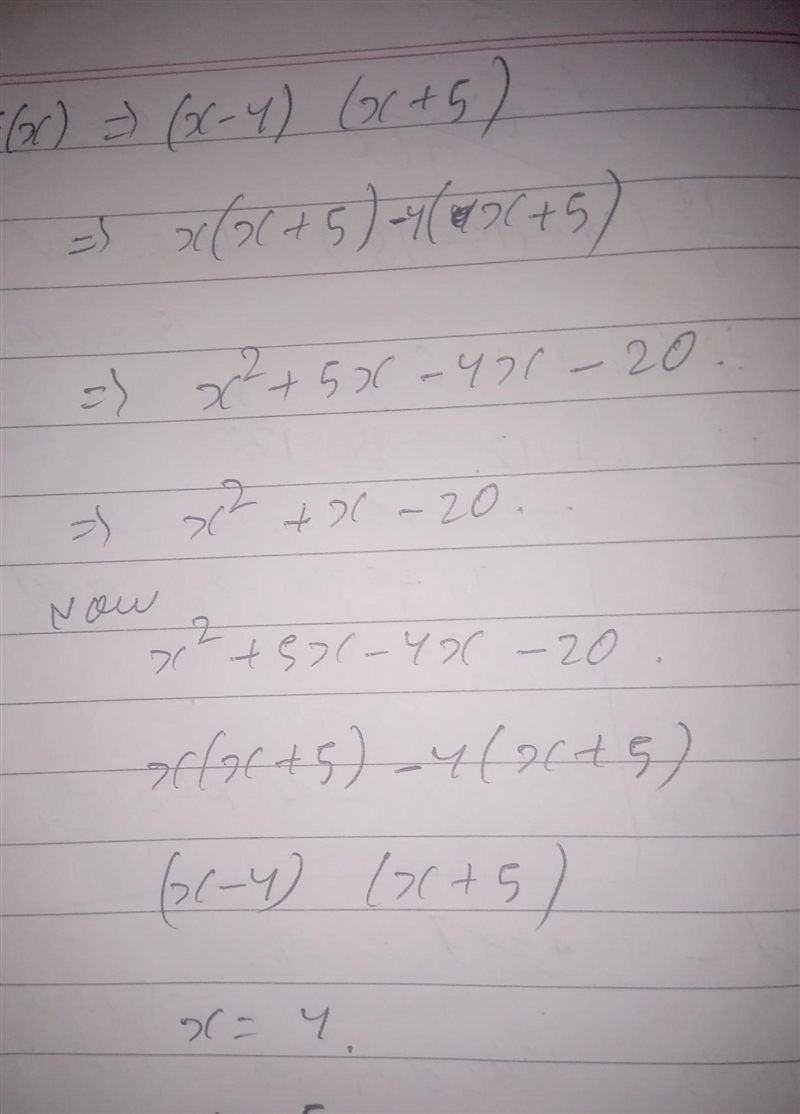 (x) => (x-4) (x+5)
=> x(x+5)-4(x+5)
=> x²+5x-4x-20.
=> x²+x-20.
Now
x²+5x-4x-20.
x(x+5)-4(x+5)
(x-4) (x+5)
x=4.